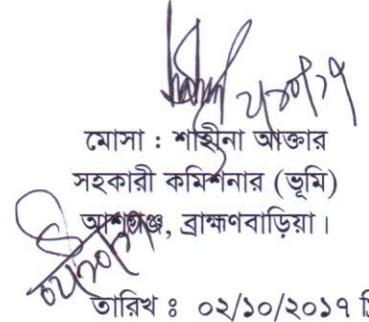 মোসা : শাহীনা আক্তার
সহকারী কমিশনার (ভূমি)
আশুগঞ্জ, ব্রাহ্মণবাড়িয়া।
তারিখ ঃ ০২/১০/২০১৭ খ্রি